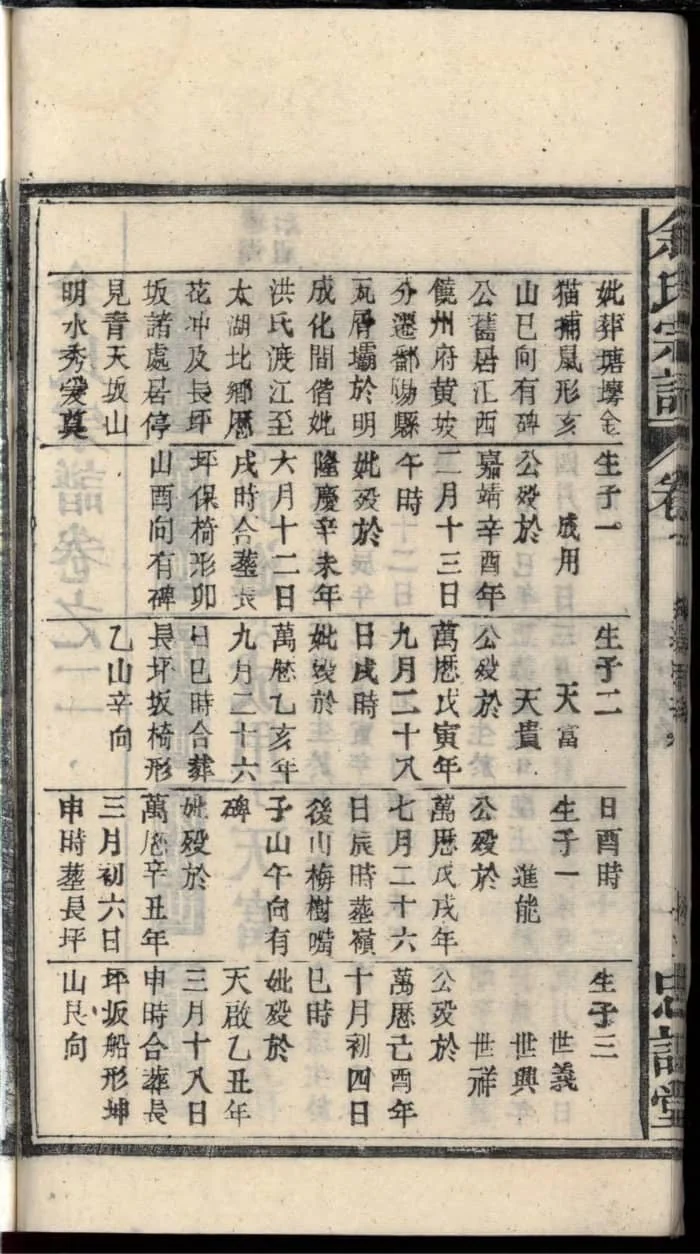 余氏宗譜
卷一
忠誥堂
妣葬塘塝金
猫捕鼠形亥
山巳向有碑
公舊居江西
饒州府黄坡
分遷鄱陽縣
瓦屑壩於明
成化間偕妣
洪氏渡江至
太湖北鄉歷
花冲及長坪
坂諸處居停
見青天坂山
明水秀爰奠
生子一
成用
公殁於
嘉靖辛酉年
二月十三日
午時
妣殁於
隆慶辛未年
六月十二日
戌時合墓長
坪保椅形卯
山酉向有碑
生子二
天富
天貴
公殁於
萬歷戊寅年
九月二十八
日戌時
妣殁於
萬歷乙亥年
九月二十六
日巳時合葬
長坪坂椅形
乙山辛向
日酉時
生子一
進能
公殁於
萬歷戊戌年
七月二十六
日辰時墓嶺
後山梅樹嘴
子山午向有
碑
妣殁於
萬歷辛丑年
三月初六日
申時墓長坪
生子三
世義
世興
世祥
公殁於
萬歷己酉年
十月初四日
巳時
妣殁於
天啟乙丑年
三月十八日
申時合葬長
坪坂船形坤
山艮向